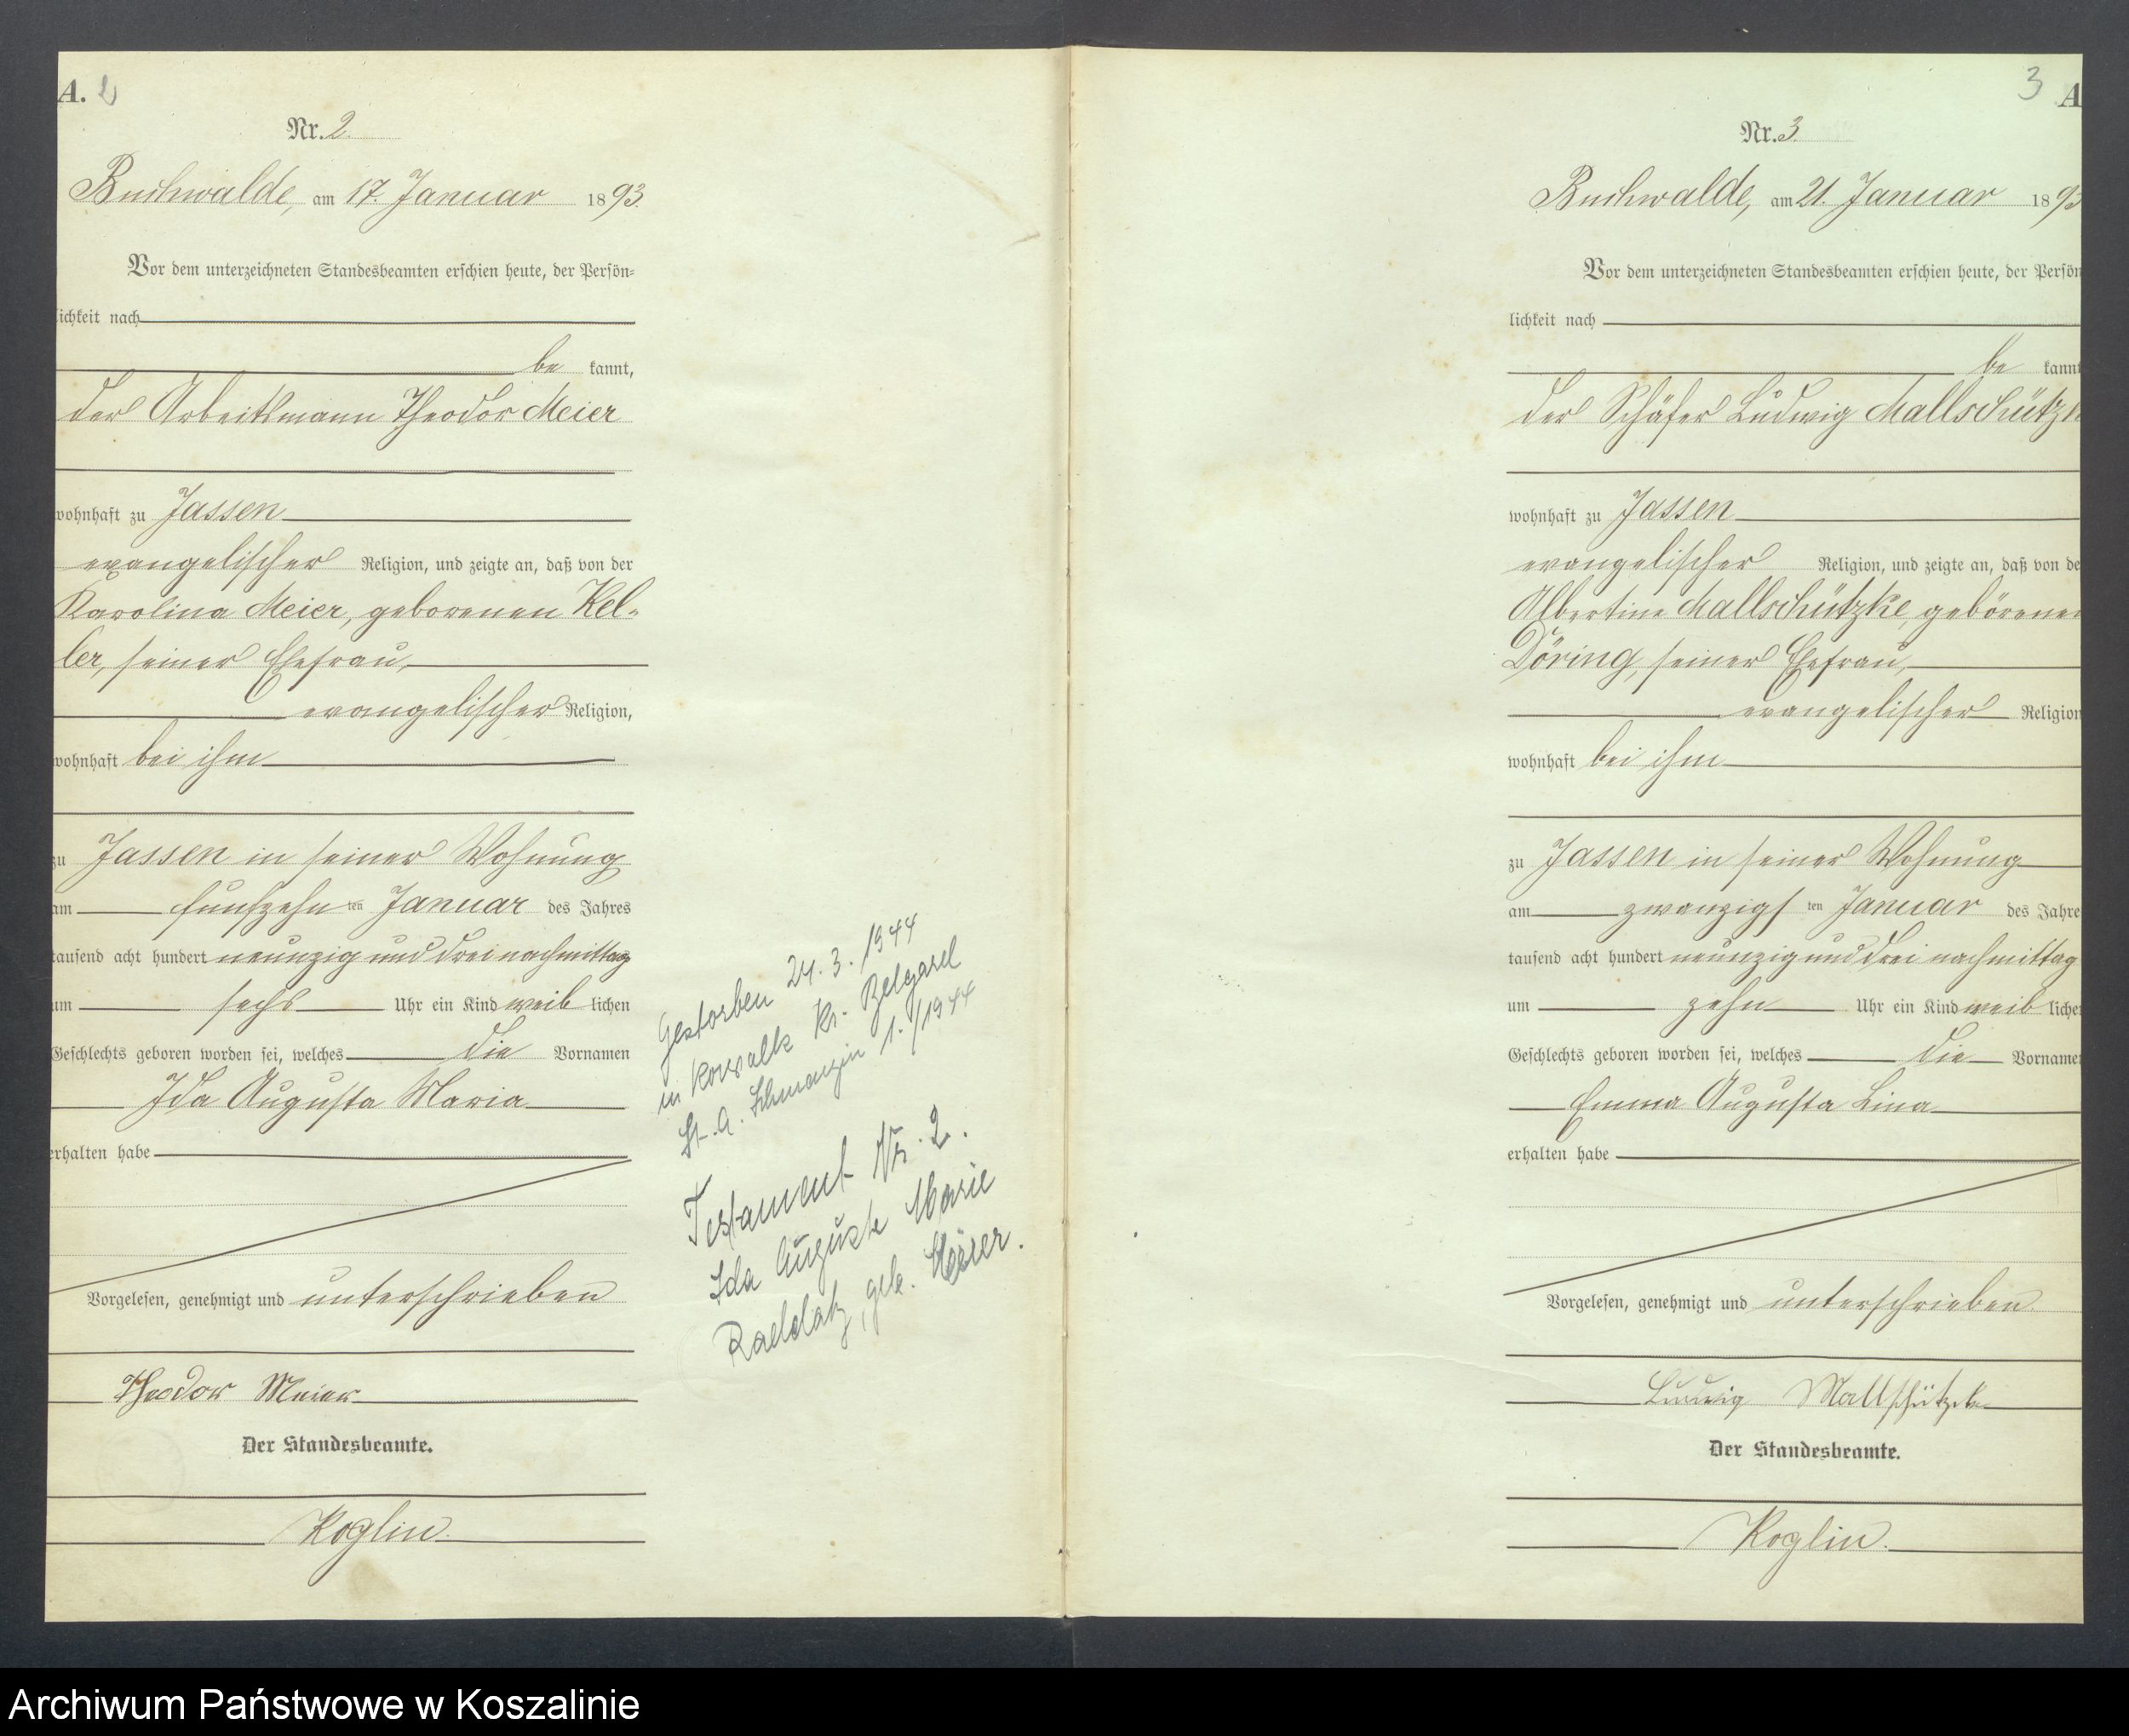 A. 2
Nr. 2.
Buchwalde, am 17. Januar 1893.
Vor dem unterzeichneten Standesbeamten erschien heute, der Persön=
lichkeit nach
be kannt,
der Arbeitsmann Theodor Meier
wohnhaft zu Jassen
evangelischer Religion, und zeigte an, daß von der
Karolina Meier, geborenen Kel-
ler, seiner Ehefrau,
evangelischer Religion,
wohnhaft bei ihm
zu Jassen in seiner Wohnung
am fünfzehn ten Januar des Jahres
tausend acht hundert neunzig und drei nachmittag
um sechs Uhr ein Kind weib lichen
Geschlechts geboren worden sei, welches die Vornamen
Ida Augusta Maria
erhalten habe
Vorgelesen, genehmigt und unterschrieben
Theodor Meier
Der Standesbeamte.
Koglin.
Gestorben 24. 3. 1944
in Kowalk Kr. Belgard
St. A. Schmenzin 1./1944
Testament Nr. 2.
Ida Auguste Marie
Raddatz, geb. Meier.
3 A
Nr. 3.
Buchwalde, am 21. Januar 1893
Vor dem unterzeichneten Standesbeamten erschien heute, der Persön
lichkeit nach
be kannt
der Schäfer Ludwig Mallschützk
wohnhaft zu Jassen
evangelischer Religion, und zeigte an, daß von de
Albertine Mallschützke, geborenen
Döring, seiner Ehefrau,
evangelischer Religion
wohnhaft bei ihm
zu Jassen in seiner Wohnung
am zwanzigs ten Januar des Jahre
tausend acht hundert neunzig und drei nachmittag
um zehn Uhr ein Kind weib liche
Geschlechts geboren worden sei, welches die Vorname
Emma Augusta Lina
erhalten habe
Vorgelesen, genehmigt und unterschrieben
Ludwig Mallschützke
Der Standesbeamte.
Koglin.
Archiwum Państwowe w Koszalinie